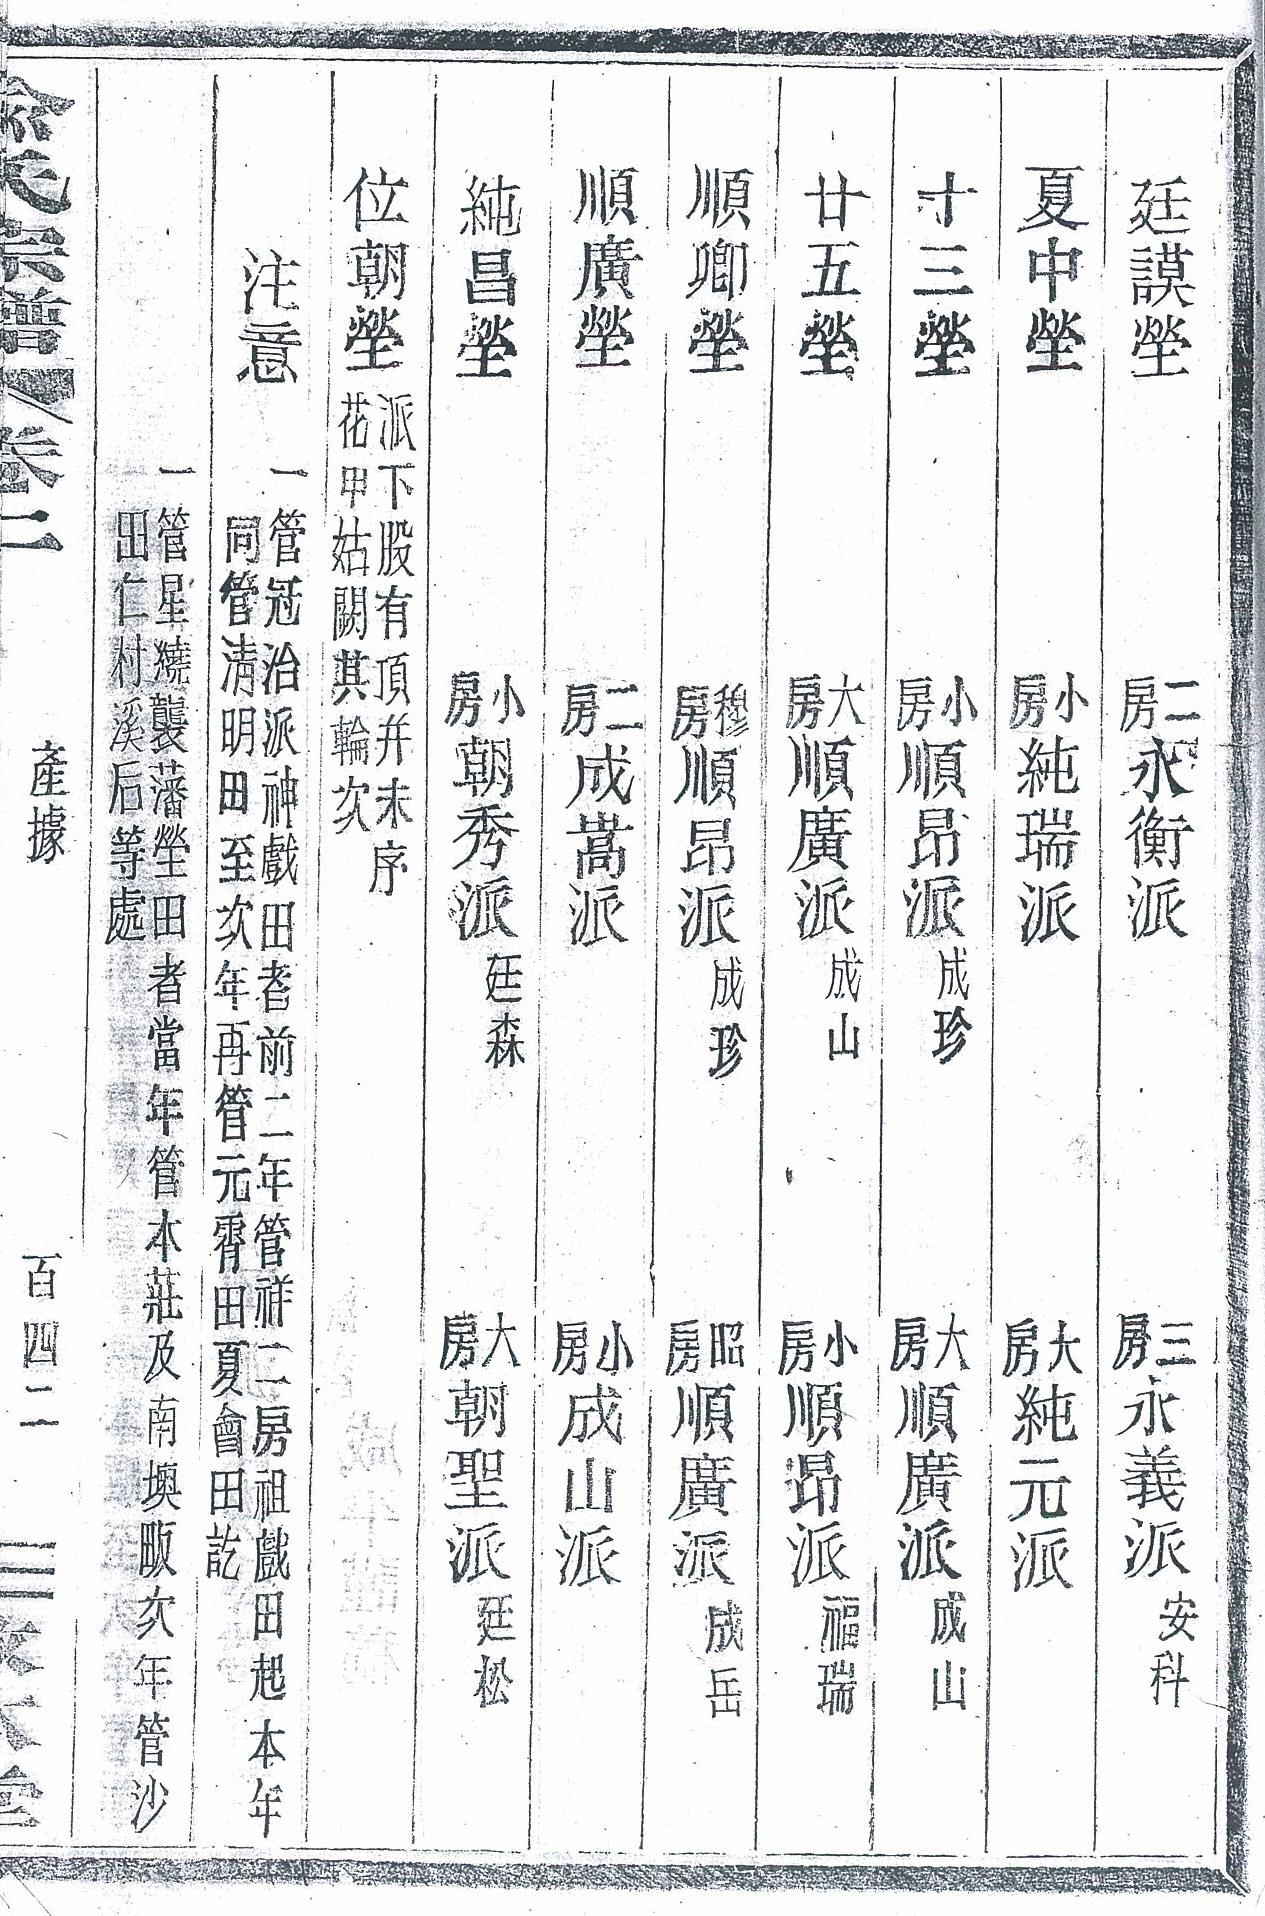 廷謨塋 二房永衡派 三房永義派安科
夏中塋 小房純瑞派 大房純元派
十三塋 小房順昂派成珍 大房順廣派成山
廿五塋 大房順廣派成山 小房順昂派福瑞
順卿塋 穆房順昂派成珍 昭房順廣派成岳
順廣塋 二房成嵩派 小房成山派
純昌塋 小房朝秀派廷森 大房朝聖派廷松
位朝塋
派下股有頂并未序
花甲姑闕其輪次
注意
一管冠治派神戲田者前二年管祥二房祖戲田起本年
同管清明田至次年再管元霄田夏會田訖
一管星繞襲藩塋田者當年管本莊及南堧畈次年管沙
田仁村溪后等處
氏宗譜 卷二 產據 百四二